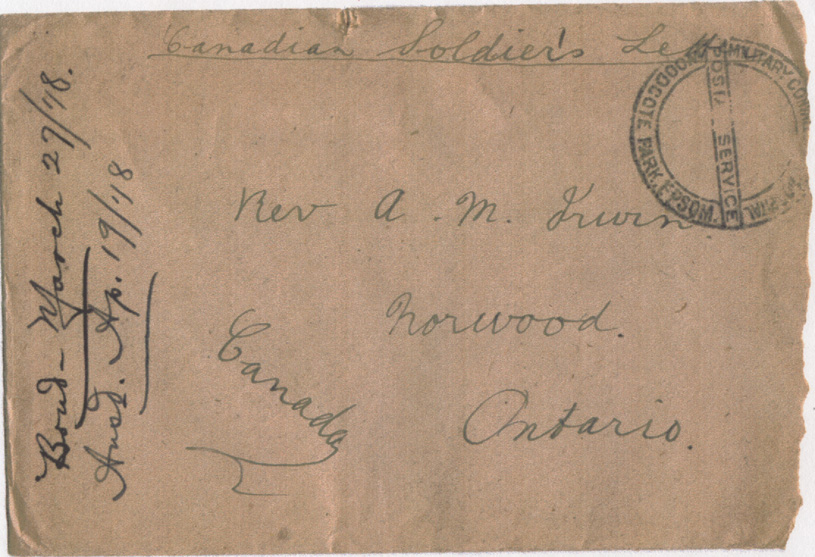 Canadian Soldier's Letter
MILITARY CONV. HOSPITAL
WOODCOTE PARK, EPSOM.
POST. SERVICE
Rev A. M. Irwin
Norwood.
Ontario.
Canada
March 27/18.
Ansd. Ap. 19/18